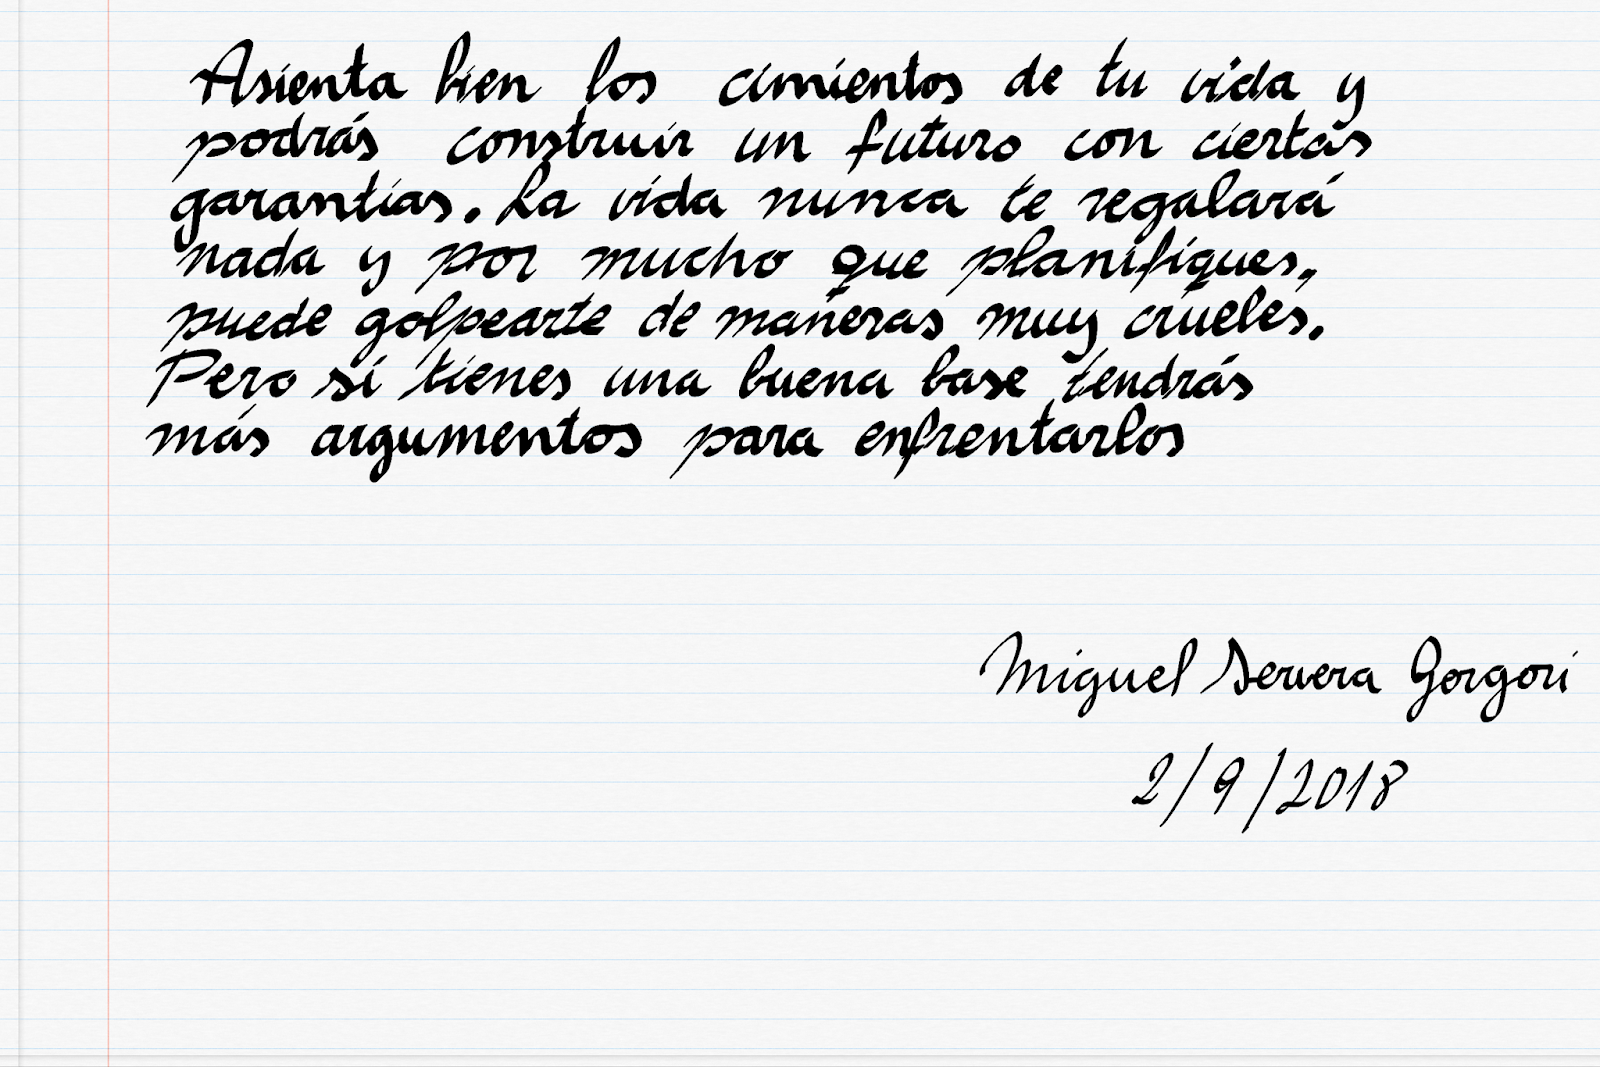 Asienta bien los cimientos de tu vida y
podrás construir un futuro con ciertas
garantías. La vida nunca te regalará
nada y por mucho que planifiques,
puede golpearte de maneras muy crueles.
Pero si tienes una buena base tendrás
más argumentos para enfrentarlos
Miguel Servera Gorgori
2/9/2018